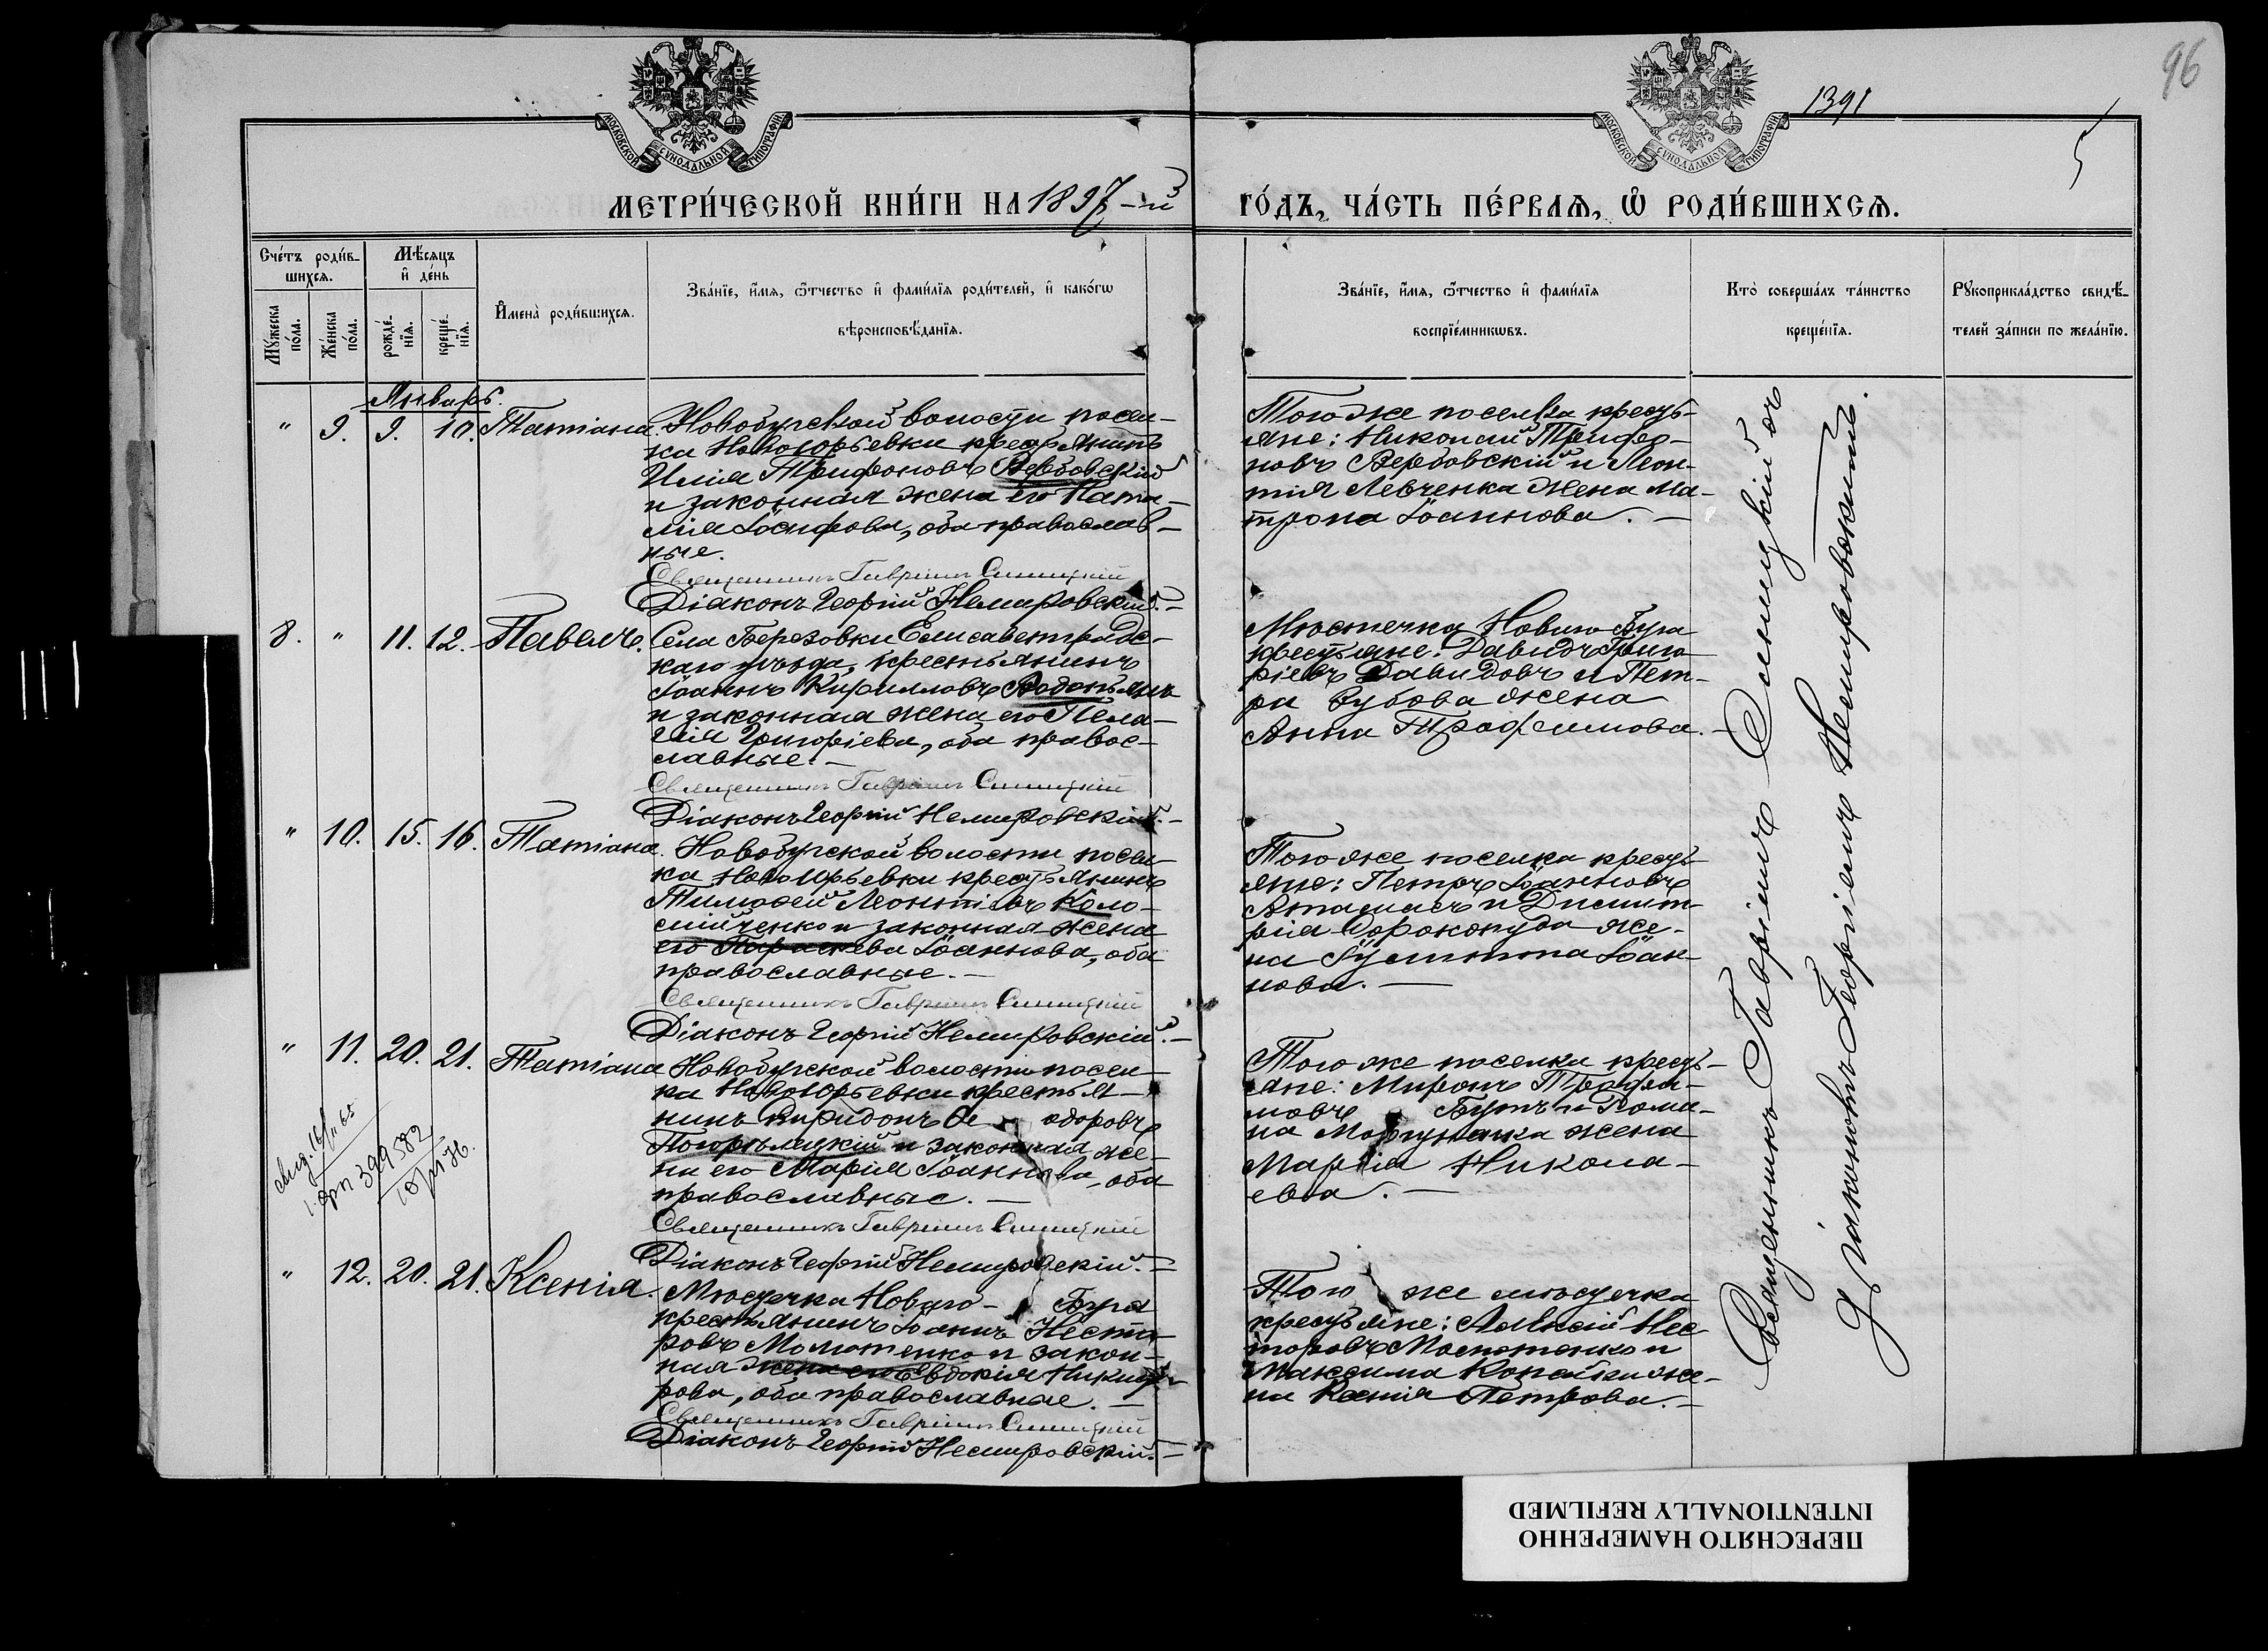 96
1391
5
МОСКОВСКОЙ СУНОДАЛЬНОЙ ТИПОГРАФІИ
МОСКОВСКОЙ СУНОДАЛЬНОЙ ТИПОГРАФІИ
МЕТРИ́ЧЕСКОЙ КНИ́ГИ НА 1897-й ГО́ДЪ, ЧА́СТЬ ПЕ́РВАѦ, Ѡ҆ РОДИ́ВШИХСѦ.
Сче́тъ роди́в-
шихсѧ.
Мꙋ́жеска по́ла.
Же́нска по́ла.
Мѣ́сѧцъ и҆ де́нь
рожде́-
нїѧ.
креще́-
нїѧ.
И҆мена̀ роди́вшихсѧ.
Зва́нїе, и҆́мѧ, ѻ҆́тчество и҆ фами́лїѧ роди́телей, и҆ како́гѡ
вѣроисповѣ́данїѧ.
Зва́нїе, и҆́мѧ, ѻ҆́тчество и҆ фами́лїѧ
воспрїе́мникѡвъ.
Кто̀ соверша́лъ та́инство
креще́нїѧ.
Рꙋкоприкла́дство свидѣ́-
телей за́писи по жела́нїю.
Январь.
" 9. 9. 10. Татіана.
Новобугской волости посел-
ка Новоюрьевки крестьянинъ
Илія Трифоновъ Вербовскій
и законная жена его Ната-
лія Іосифова, оба православ-
ные.
Священникъ Гавріилъ Синицкій
Діаконъ Георгій Немировскій.-
Того же поселка кресть-
яне: Николай Трифо-
новъ Вербовскій и Леон-
тія Левченка жена Ма-
трона Іоаннова. -
8. " 11. 12. Павелъ.
Села Березовки Елисаветградс-
каго уѣзда, крестьянинъ
Іоаннъ Кирилловъ Водопьянъ
и законная жена его Пела-
гія Григоріева, оба правос-
лавные. -
Священникъ Гавріилъ Синицкій
Діаконъ Георгій Немировскій.-
Мѣстечка Новаго-Буга
крестьяне: Давидъ Григо-
ріевъ Давидовъ и Пет-
ра Зубова жена
Анна Трофимова. -
" 10. 15. 16. Татіана.
Новобугской волости посел-
ка Новоюрьевки крестьянинъ
Тимофей Леонтіевъ Коло-
мійченко и законная жена
его Параскева Іоаннова, оба
православные. -
Священникъ Гавріилъ Синицкій
Діаконъ Георгій Немировскій.-
Того же поселка кресть-
яне: Петръ Іоанновъ
Атамасъ и Димит-
рія Сорокопуда же-
на Іустина Іоан-
нова. -
" 11. 20. 21. Татіана
Новобугской волости посел-
ка Новоюрьевки крестья-
нинъ Спиридонъ Ѳе одоровъ
Погорѣлецкій и законная же-
на его Марія Іоаннова, оба
православные. -
Священникъ Гавріилъ Синицкій
Діаконъ Георгій Немировскій.-
Того же поселка кресть-
яне: Миронъ Трофи-
мовъ Бутъ и Рома-
на жена
Марія Никола-
ева. -
399582
" 12. 20. 21. Ксенія.
Мѣстечка Новаго- Буга
крестьянинъ Іоаннъ Несто-
ровъ Молотенко и закон-
ная жена его Евдокія Никиф-
рова, оба православные. -
Священникъ Гавріилъ Синицкій
Діаконъ Георгій Немировскій.-
Того же мѣстечка
крестьяне: Алексій Нес-
торовъ Молотенко и
Максима Копейки же-
на Ксенія Петрова. -
Священникъ Гавріилъ Синицкій съ
Діакономъ Георгіемъ Немировскимъ.
ПЕРЕСНЯТО НАМЕРЕННО
INTENTIONALLY REFILMED